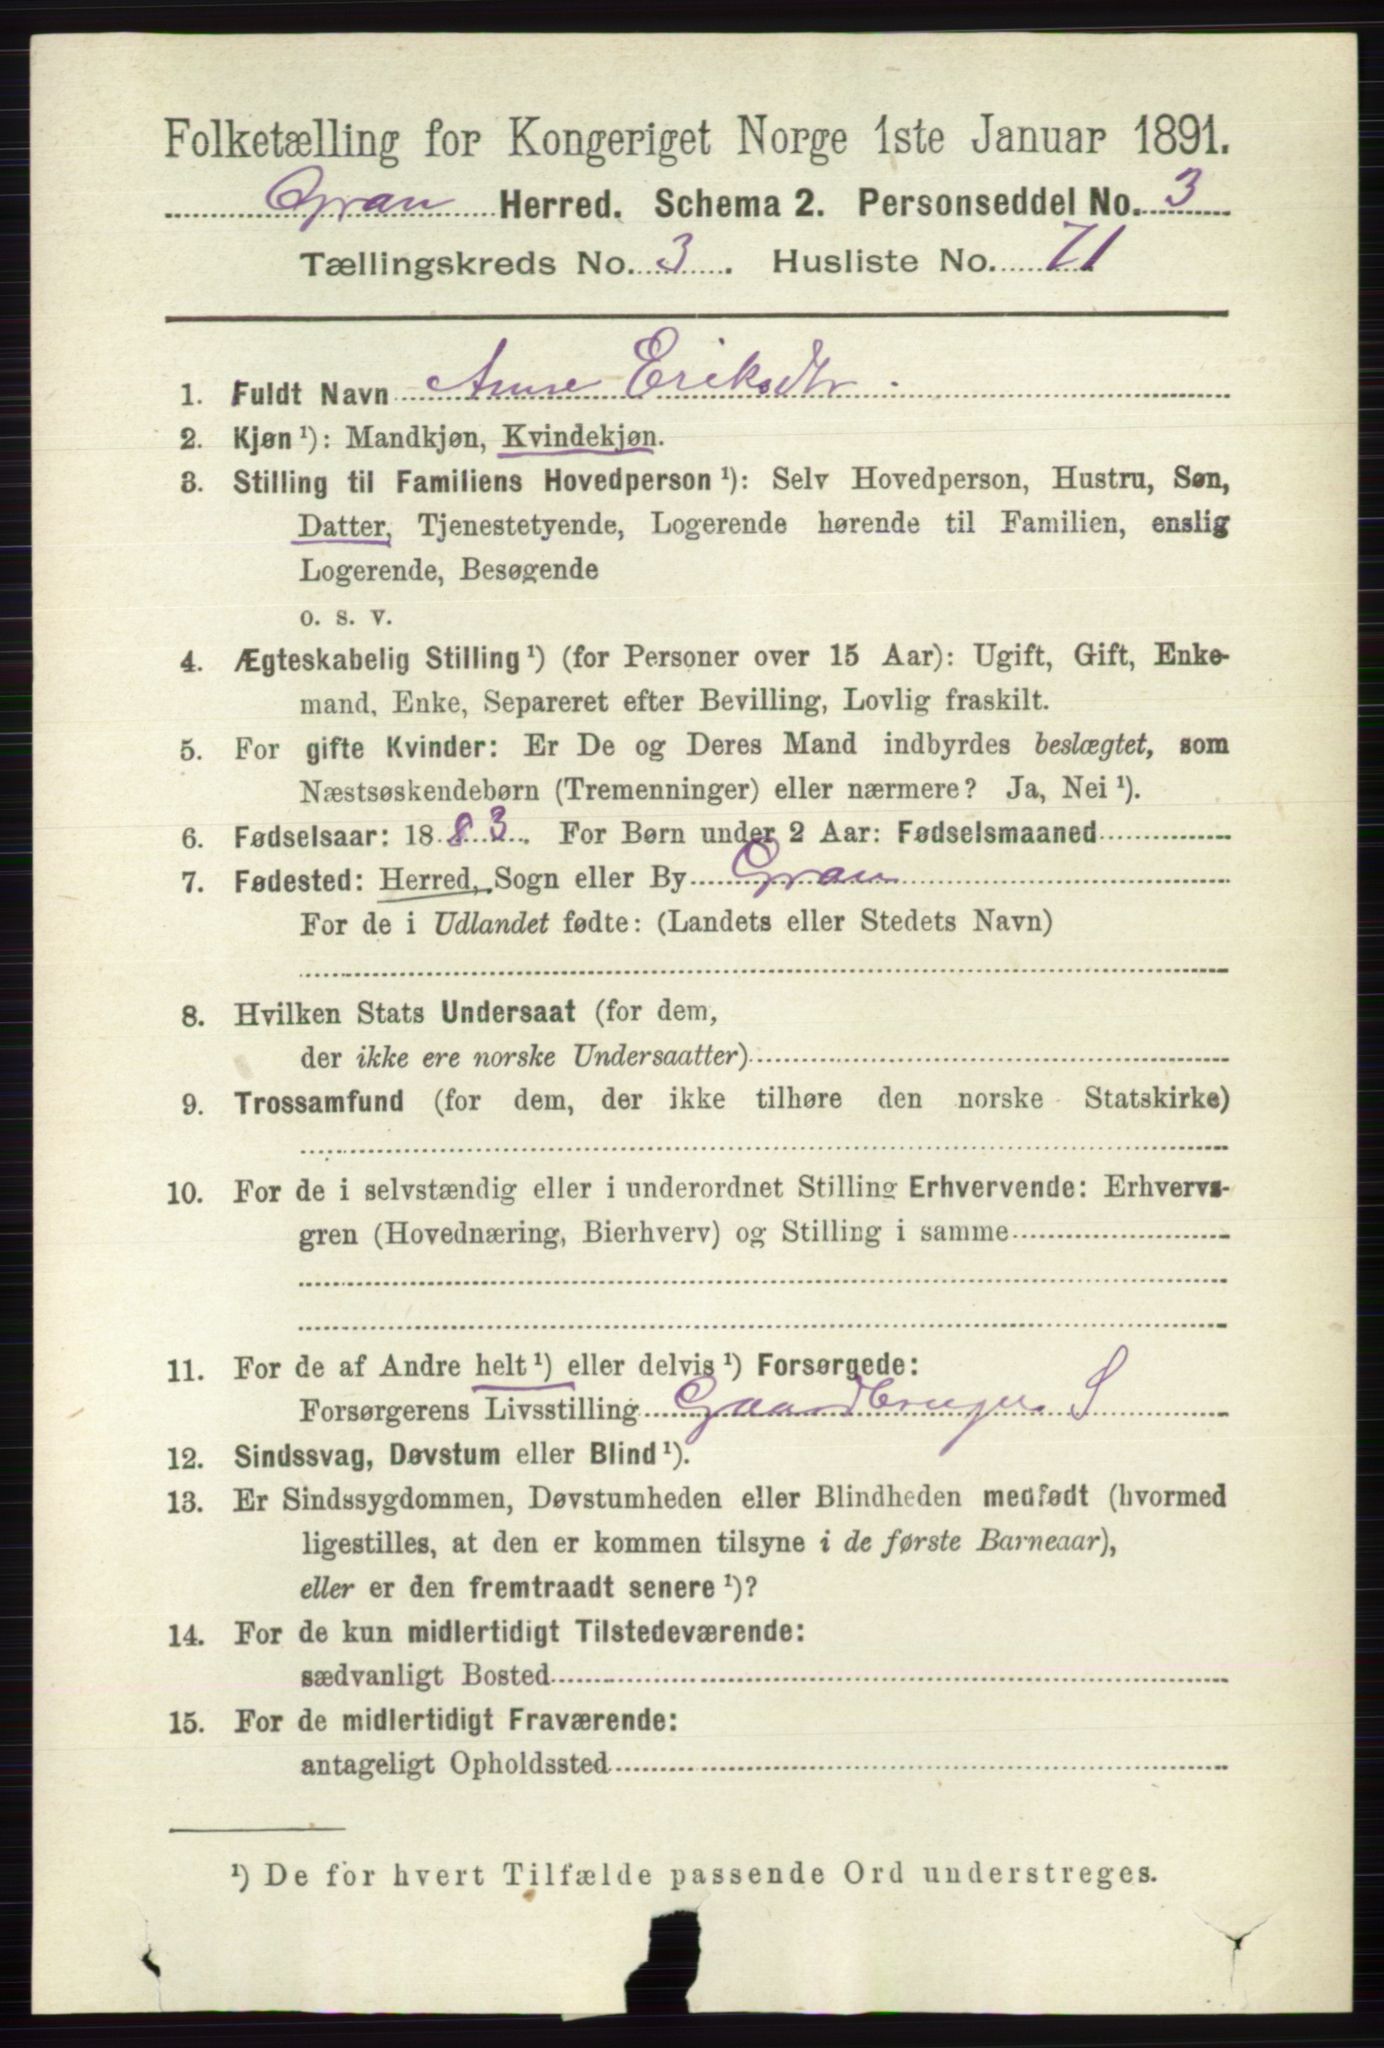 Folketælling for Kongeriget Norge 1ste Januar 1891.
Gran Herred. Schema 2. Personseddel No. 3
Tællingskreds No. 3. Husliste No. 71
1. Fuldt Navn Anne Eriksdtr
2. Kjøn ¹): Mandkjøn, Kvindekjøn.
3. Stilling til Familiens Hovedperson ¹): Selv Hovedperson, Hustru, Søn,
Datter, Tjenestetyende, Logerende hørende til Familien, enslig
Logerende, Besøgende
o. s. v.
4. Ægteskabelig Stilling ¹) (for Personer over 15 Aar): Ugift, Gift, Enke-
mand, Enke, Separeret efter Bevilling, Lovlig fraskilt.
5. For gifte Kvinder: Er De og Deres Mand indbyrdes beslægtet, som
Næstsøskendebørn (Tremenninger) eller nærmere? Ja, Nei ¹).
6. Fødselsaar: 1883. For Børn under 2 Aar: Fødselsmaaned
7. Fødested: Herred, Sogn eller By Gran
For de i Udlandet fødte: (Landets eller Stedets Navn)
8. Hvilken Stats Undersaat (for dem,
der ikke ere norske Undersaatter)
9. Trossamfund (for dem, der ikke tilhøre den norske Statskirke)
10. For de i selvstændig eller i underordnet Stilling Erhvervende: Erhvervs-
gren (Hovednæring, Bierhverv) og Stilling i samme
11. For de af Andre helt ¹) eller delvis ¹) Forsørgede:
Forsørgerens Livsstilling Gaardbruger S
12. Sindssvag, Døvstum eller Blind ¹).
13. Er Sindssygdommen, Døvstumheden eller Blindheden medfødt (hvormed
ligestilles, at den er kommen tilsyne i de første Barneaar),
eller er den fremtraadt senere ¹)?
14. For de kun midlertidigt Tilstedeværende:
sædvanligt Bosted
15. For de midlertidigt Fraværende:
antageligt Opholdssted
¹) De for hvert Tilfælde passende Ord understreges.